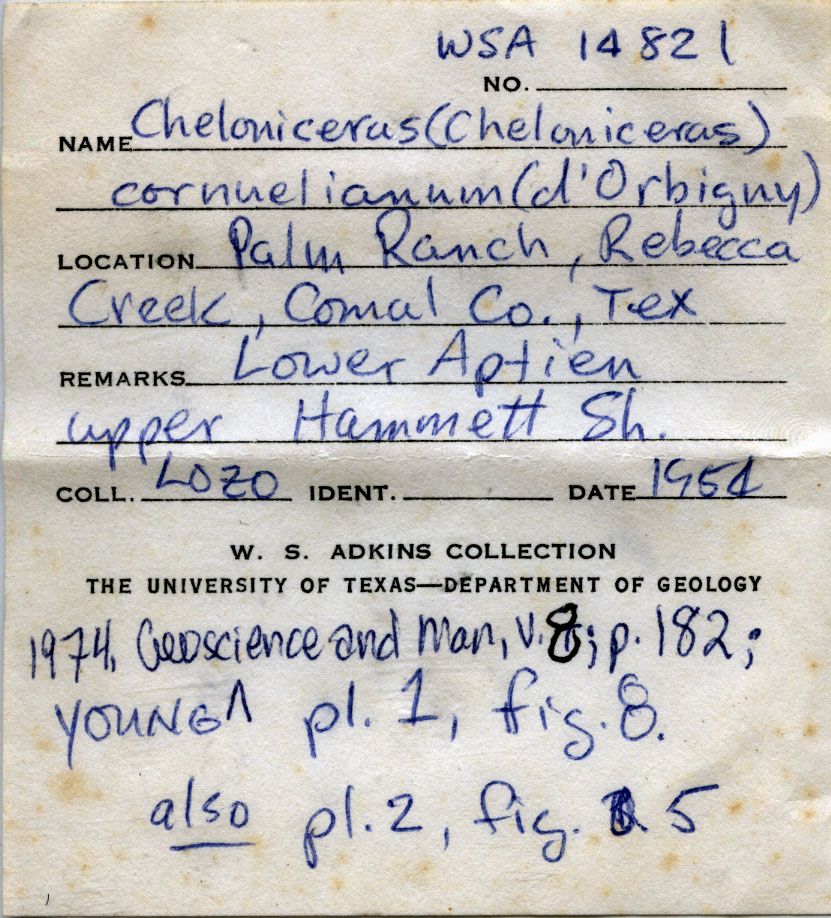 WSA 14821
NO.
NAME Cheloniceras (Cheloniceras)
cornuelianum (d'Orbigny)
LOCATION Palm Ranch, Rebecca
Creek, Comal Co., Tex
REMARKS Lower Aptien
upper Hammett Sh.
COLL. LOZO IDENT. DATE 1954
W. S. ADKINS COLLECTION
THE UNIVERSITY OF TEXAS—DEPARTMENT OF GEOLOGY
1974, Geoscience and Man, V. 8; p. 182;
YOUNG ^ pl. 1, fig. 8.
also pl. 2, fig. 5